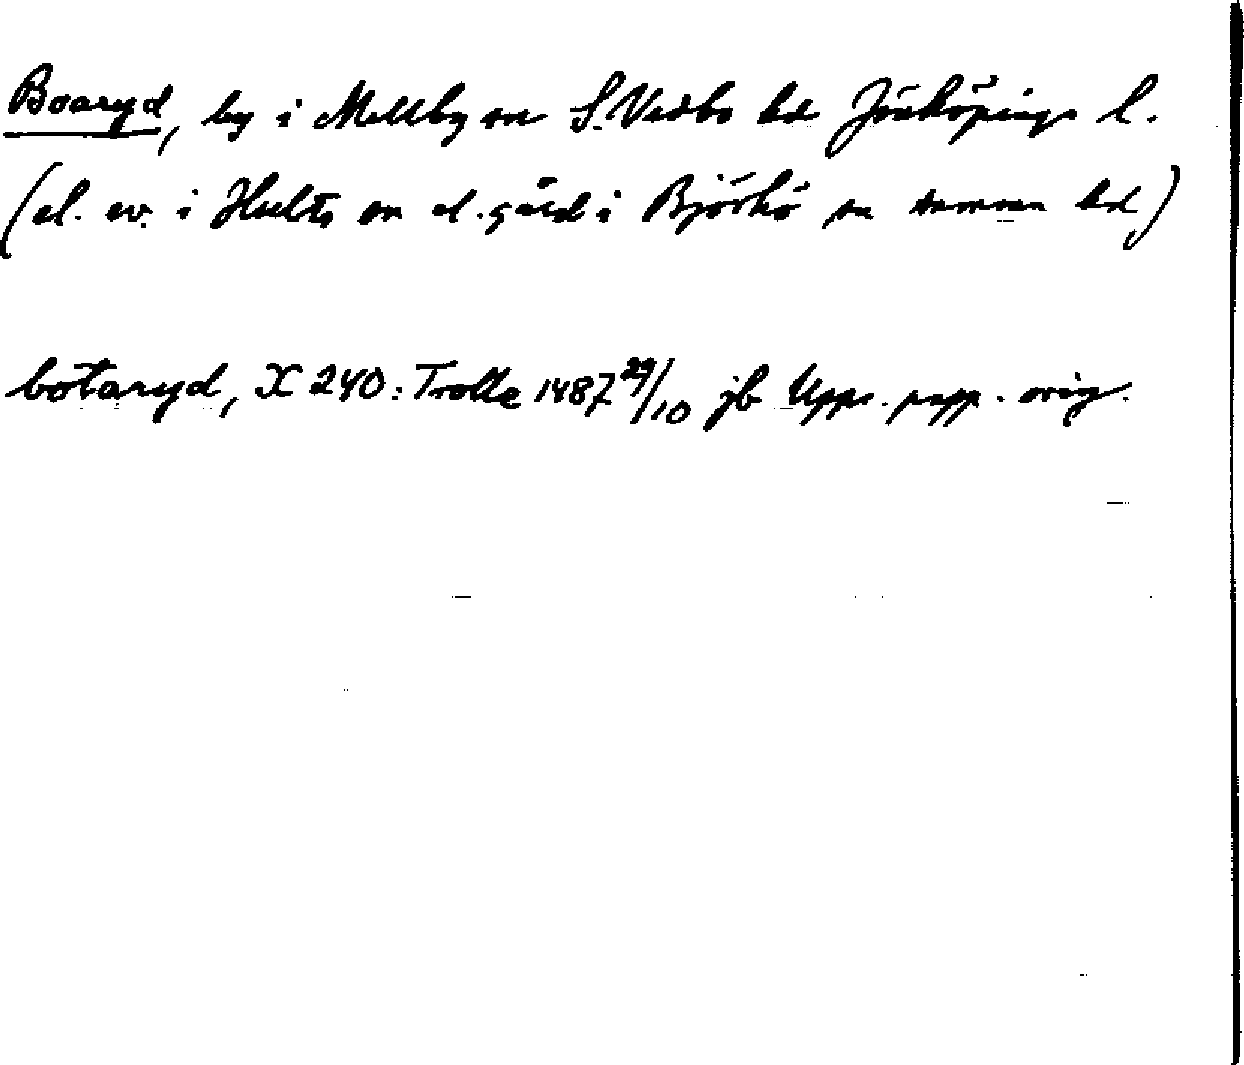 Boaryd, by i Mellby sn S. Vedbo hd Jönköpings l.
(el. ev. i Hults sn el. gård i Björkö sn samma hd)
botaryd, X 240: Trolle 1487 29/10 jb Upps. papp. orig.